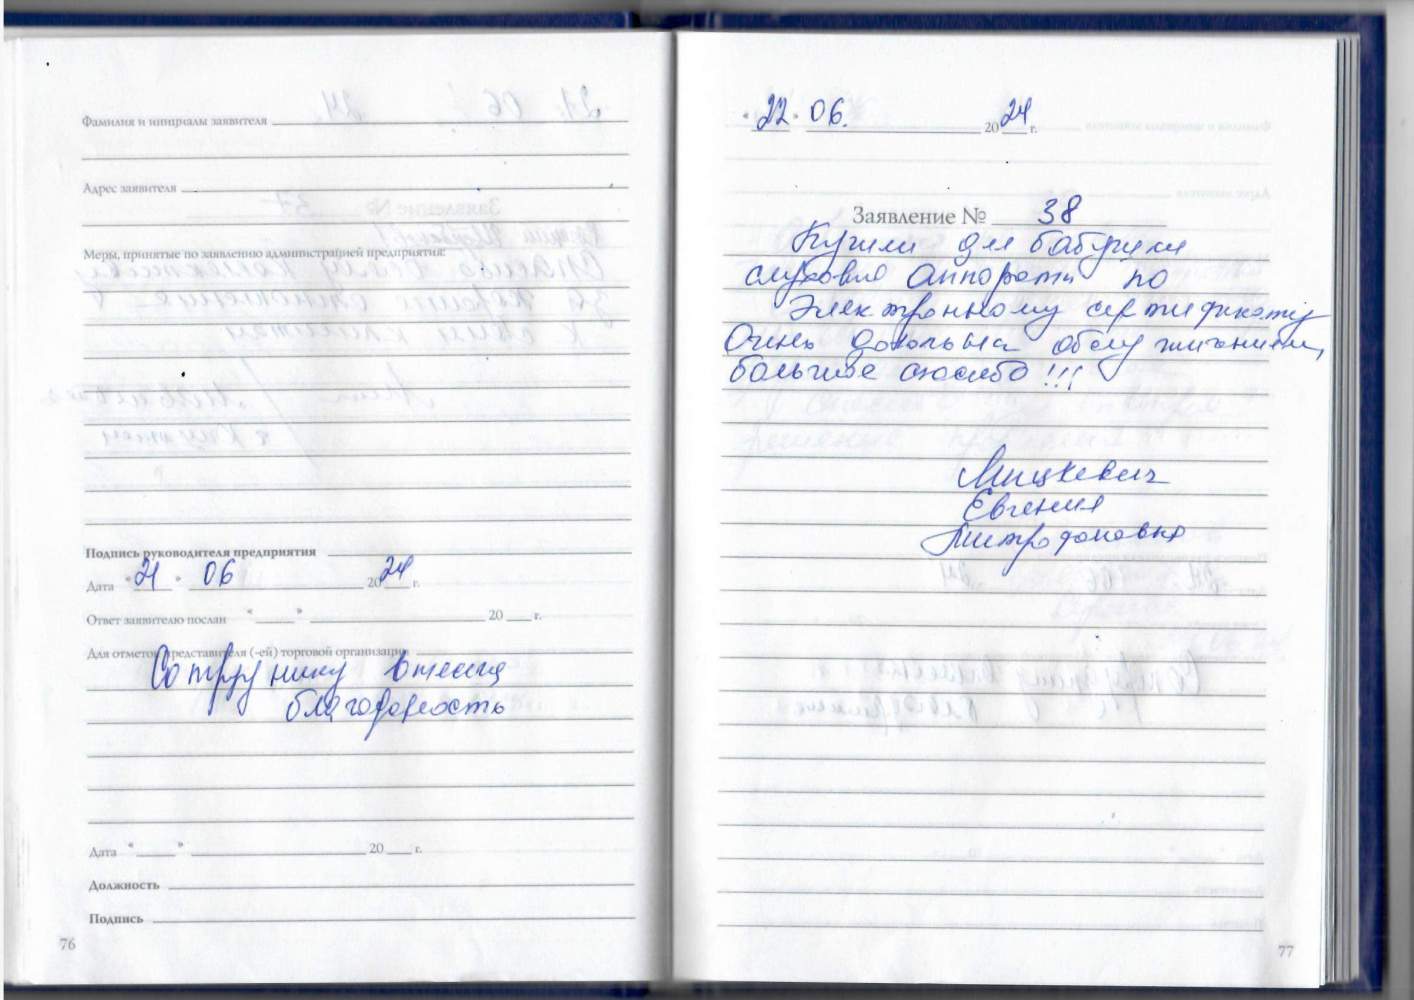 Фамилия и инициалы заявителя
Адрес заявителя
Меры, принятые по заявлению администрацией предприятия:
Подпись руководителя предприятия
Дата "21" 06 2024 г.
Ответ заявителю послан " " 20 г.
Для отметок представителя (-ей) торговой организации
Сотруднику вынесена
благодарность
Дата " " 20 г.
Должность
Подпись
76
"22" 06. 2024 г.
Заявление № 38
Купили для бабушки
слуховые аппараты по
электронному сертификату
Очень довольна обслуживанием,
большое спасибо!!!
Мицкевич
Евгения
Митрофановна
77